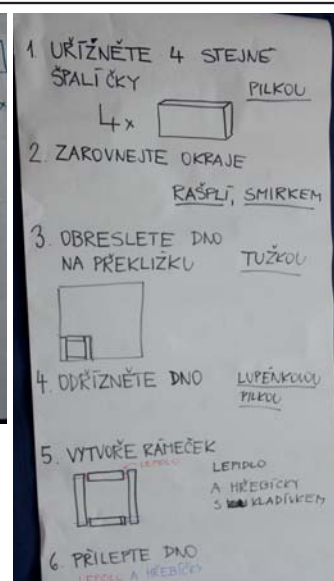 1. UŘÍŽNĚTE 4 STEJNÉ
ŠPALÍČKY
PILKOU
4x
2. ZAROVNEJTE OKRAJE
RAŠPLÍ, SMIRKEM
3. OBRESLETE DNO
NA PŘEKLIŽKU TUŽKOU
4. ODŘÍZNĚTE DNO LUPÉNKOVOU
PILKOU
5. VYTVOŘE RÁMEČEK
LEPIDLO
LEPIDLO
A HŘEBÍČKY
S KLADÍVKEM
6. PŘILEPTE DNO
LEPIDLO A HŘEBÍČKY